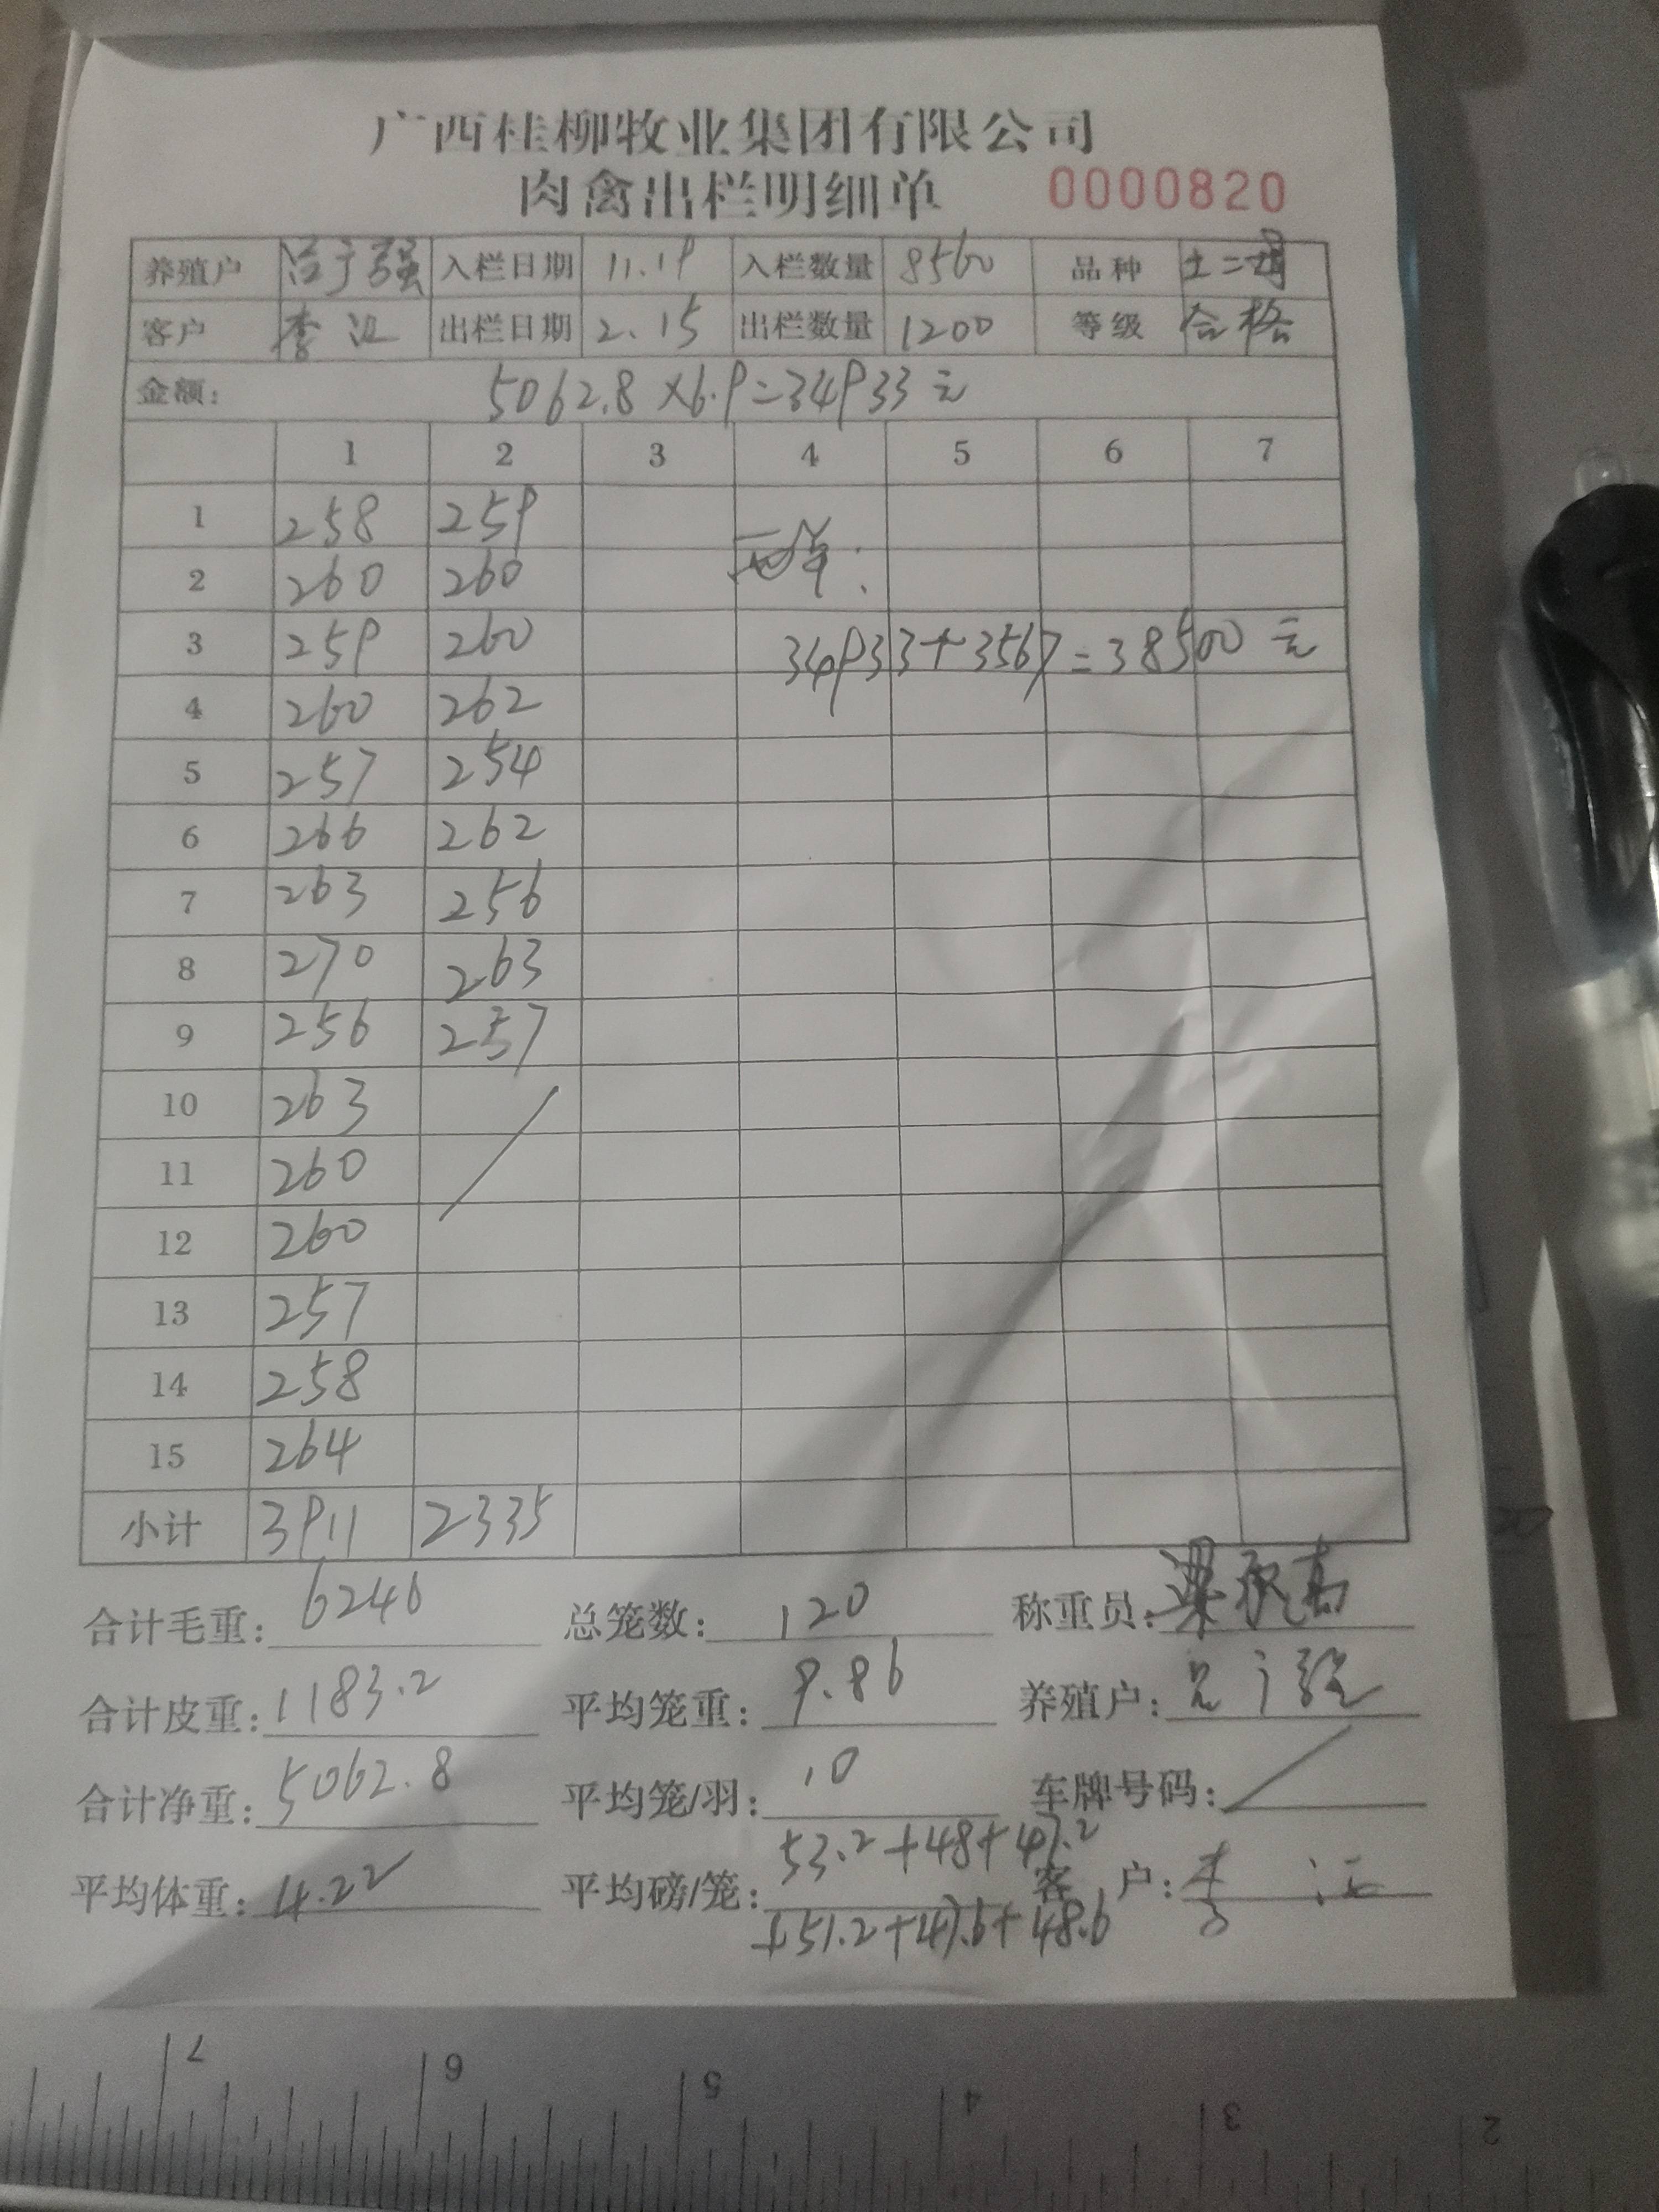 广西桂柳牧业集团有限公司
肉禽出栏明细单 0000820
养殖户 强 入栏日期 11.19 入栏数量 8560 品种 土二
客户 李江 出栏日期 2.15 出栏数量 1200 等级 合格
金额: 5062.8×6.9=34933元
1 2 3 4 5 6 7
1 258 259
2 260 260 单:
3 259 260 34933+3567=38500元
4 260 262
5 257 254
6 266 262
7 263 256
8 270 263
9 256 257
10 263
11 260
12 260
13 257
14 258
15 264
小计 3911 2335
合计毛重: 6246 总笼数: 120 称重员: 梁
合计皮重: 1183.2 平均笼重: 9.86 养殖户:
合计净重: 5062.8 平均笼/羽: 10 车牌号码: /
53.2+48+47.2
平均体重: 4.22 平均磅/笼: 客户: 李江
+51.2+47.6+48.6
7 6 5 4 3 2